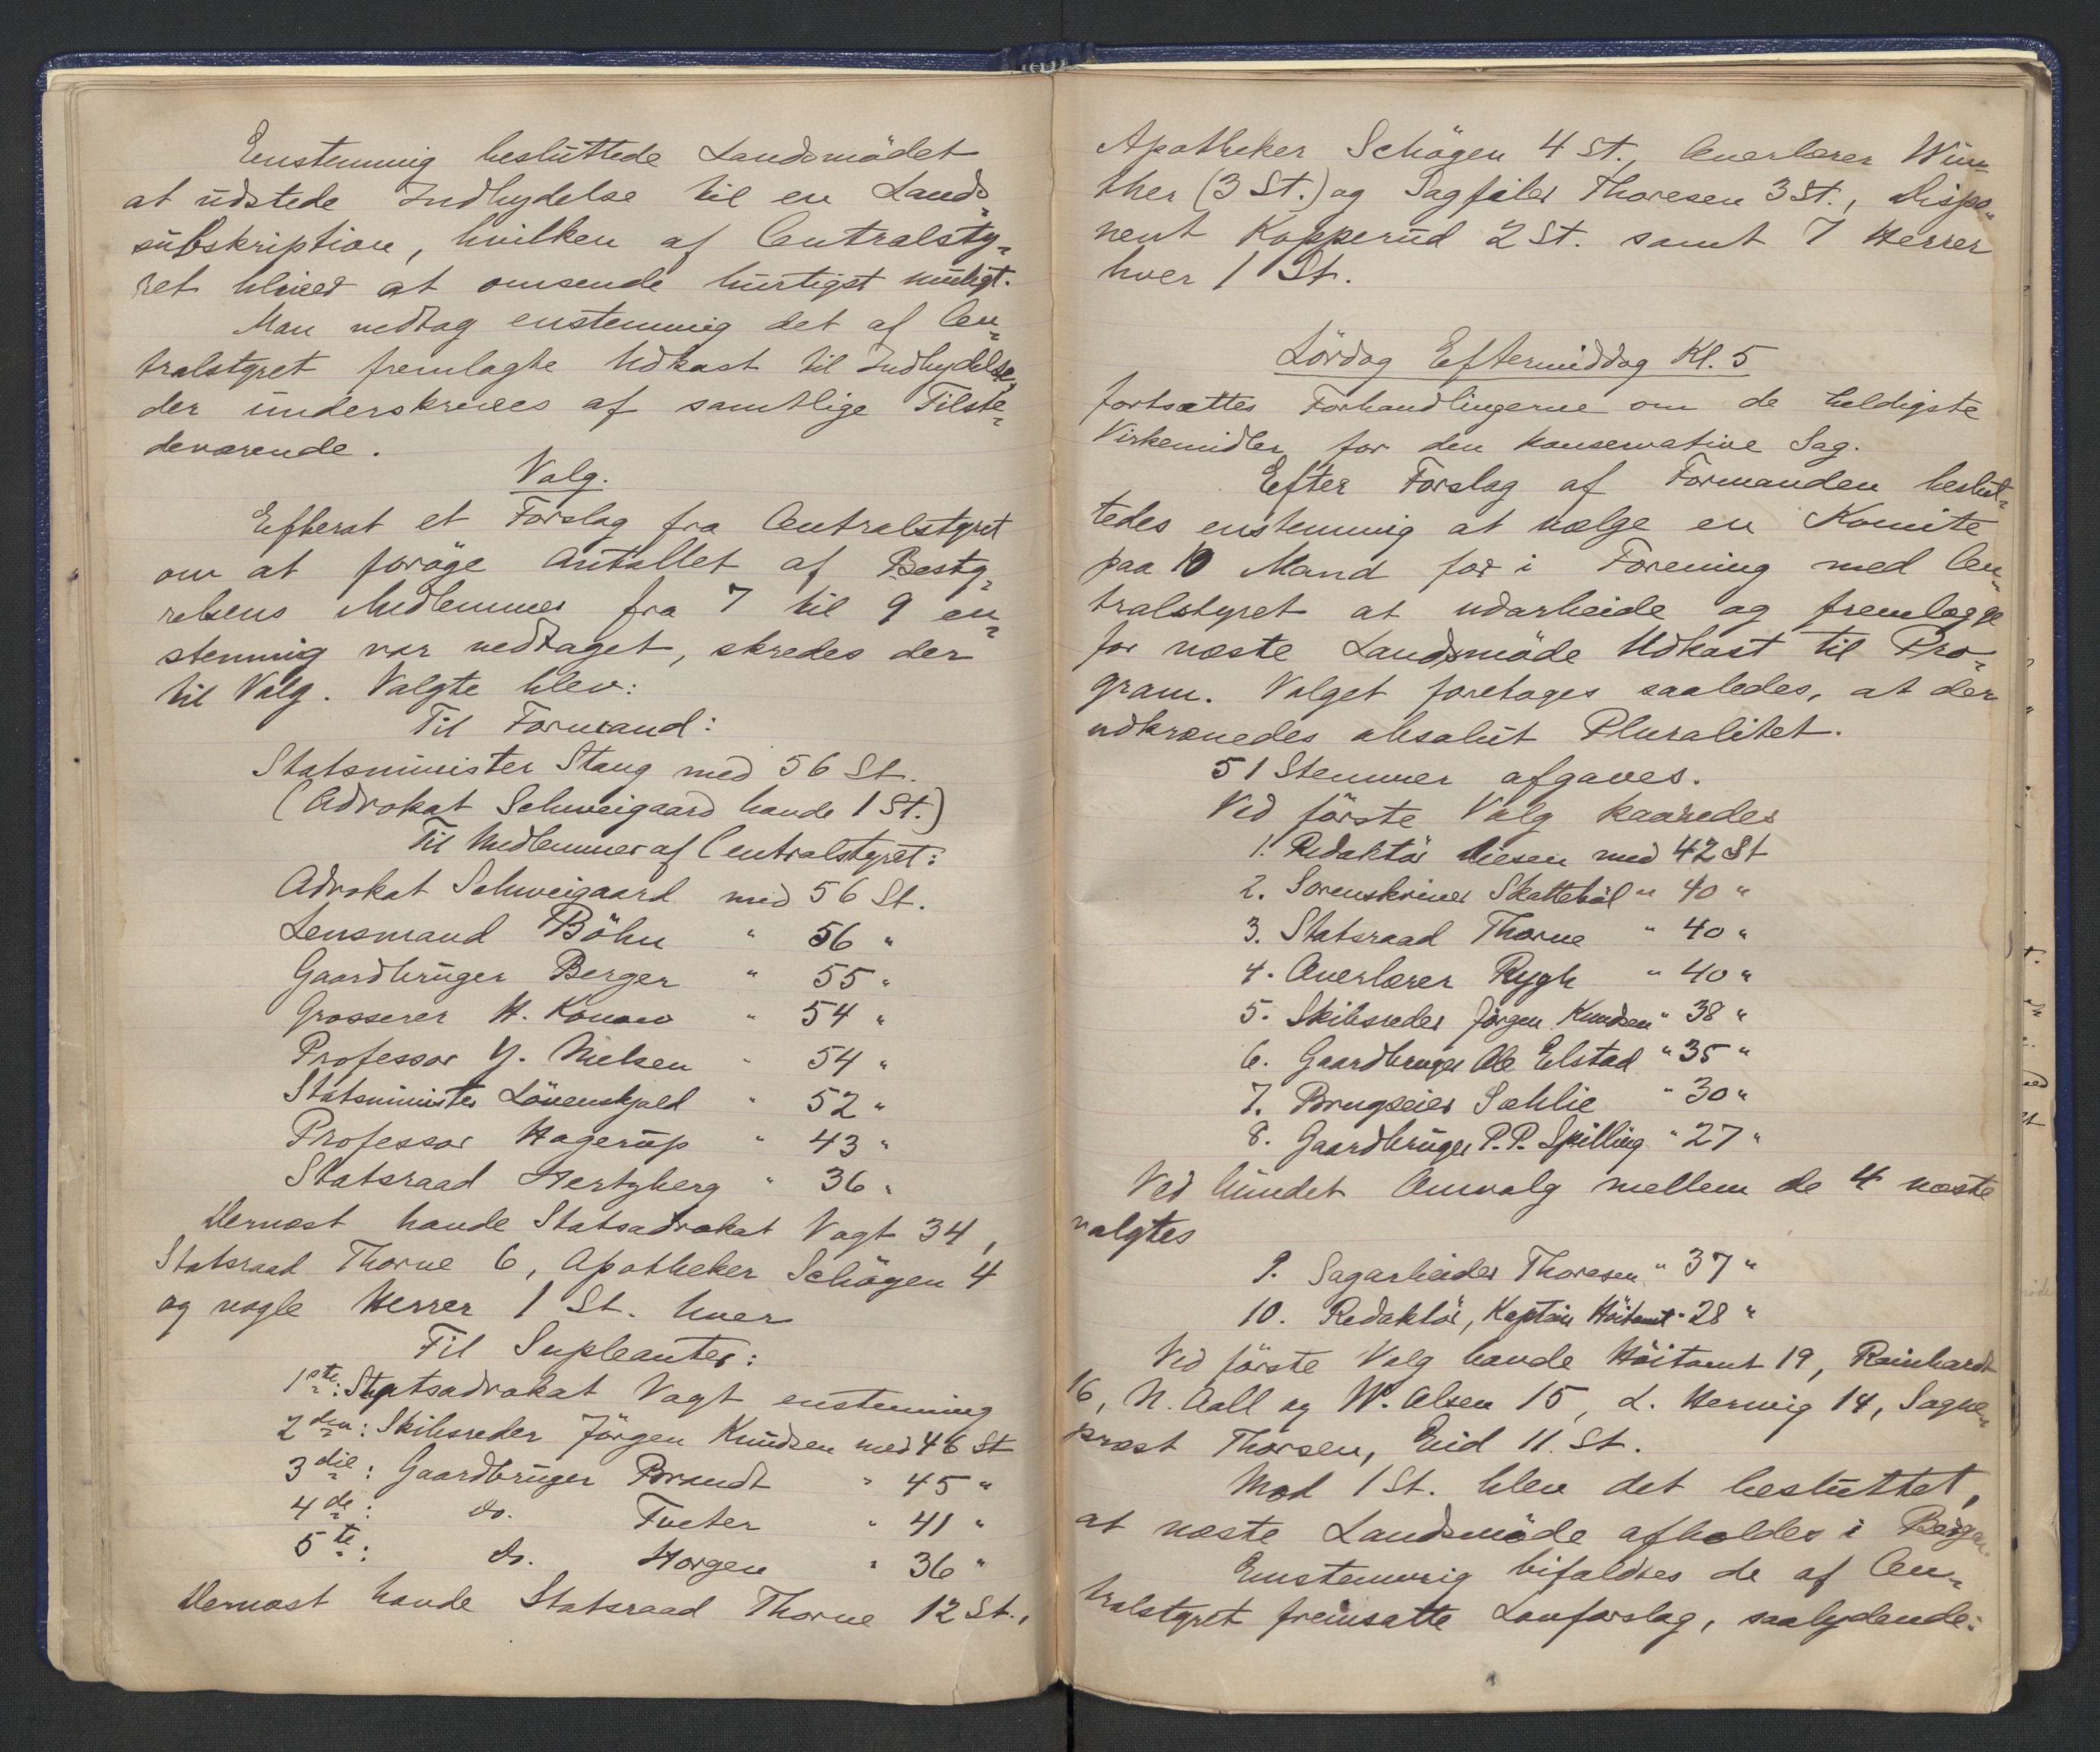 Enstemmig besluttede Landsmödet
at udstede Indbydelse til en Lands-
subskription, hvilken af Centralsty-
ret bliver at omsende hurtigst muligt.
Man vedtog enstemmig det af Cen-
tralstyret fremlagte Udkast til Indbydelse,
der underskreves af samtlige Tilste-
deværende.
Valg.
Efterat et Forslag fra Centralstyret
om at foröge Antallet af Besty-
relsens Medlemmer fra 7 til 9 en-
stemmig var vedtaget, skredes der
til Valg. Valgte blev:
Til Formand:
Statsminister Stang med 56 St.
(Advokat Schweigaard havde 1 St.)
Til Medlemmer af Centralstyret:
Advokat Schweigaard med 56 St.
Lensmand Böhn " 56 "
Gaardbruger Berger " 55 "
Grosserer H. Konow " 54 "
Professor Y. Nielsen " 54 "
Statsminister Lövenskjold " 52 "
Professor Hagerup " 43 "
Statsraad Hertzberg " 36 "
Dernæst havde Statsadvokat Vogt 34,
Statsraad Thorne 6, Apotheker Schögen 4
og nogle Herrer 1 St. hver
Til Supleanter:
1ste: Statsadvokat Vogt enstemmig
2den: Skibsreder Jörgen Knudsen med 46 St
3die: Gaardbruger Brandt " 45 "
4de: do. Tveter " 41 "
5te: do. Horgen " 36 "
Dernæst havde Statsraad Thorne 12 St.,
Apotheker Schögen 4 St., Overlærer Win-
ther (3 St.) og Sagförer Thoresen 3 St., Dispo-
nent Kopperud 2 St. samt 7 Herrer
hver 1 St.
Lördag Eftermiddag Kl. 5
fortsættes Forhandlingerne om de heldigste
Virkemidler for den konservative Sag.
Efter Forslag af Formanden beslut-
tedes enstemmig at vælge en Komite
paa 10 Mand for i Forening med Cen-
tralstyret at udarbeide og fremlægge
for næste Landsmöde Udkast til Pro-
gram. Valget foretoges saaledes, at der
udkrævedes absolut Pluralitet.
51 Stemmer afgaves.
Ved förste Valg kaaredes
1. Redaktör Diesen med 42 St
2. Sorenskriver Skattebøl " 40 "
3. Statsraad Thorne " 40 "
4. Overlærer Rygh " 40 "
5. Skibsreder Jörgen Knudsen " 38 "
6. Gaardbruger Ole Elstad " 35 "
7. Brugseier Sahlie " 30 "
8. Gaardbruger P. P. Spilling " 27 "
Ved bundet Omvalg mellem de 4 næste
valgtes
9. Sagarbeider Thoresen " 37 "
10. Redaktör, Kaptein Höitomt " 28 "
Ved förste Valg havde Höitomt 19, Reinhardt
16, N. Aall og W. Olsen 15, L. Herwig 14, Sogne-
præst Thorsen, Eid 11 St.
Mod 1 St. blev det besluttet,
at næste Landsmöde afholdes i Bergen.
Enstemmig bifaldtes de af Cen-
tralstyret fremsatte Lovforslag, saalydende: